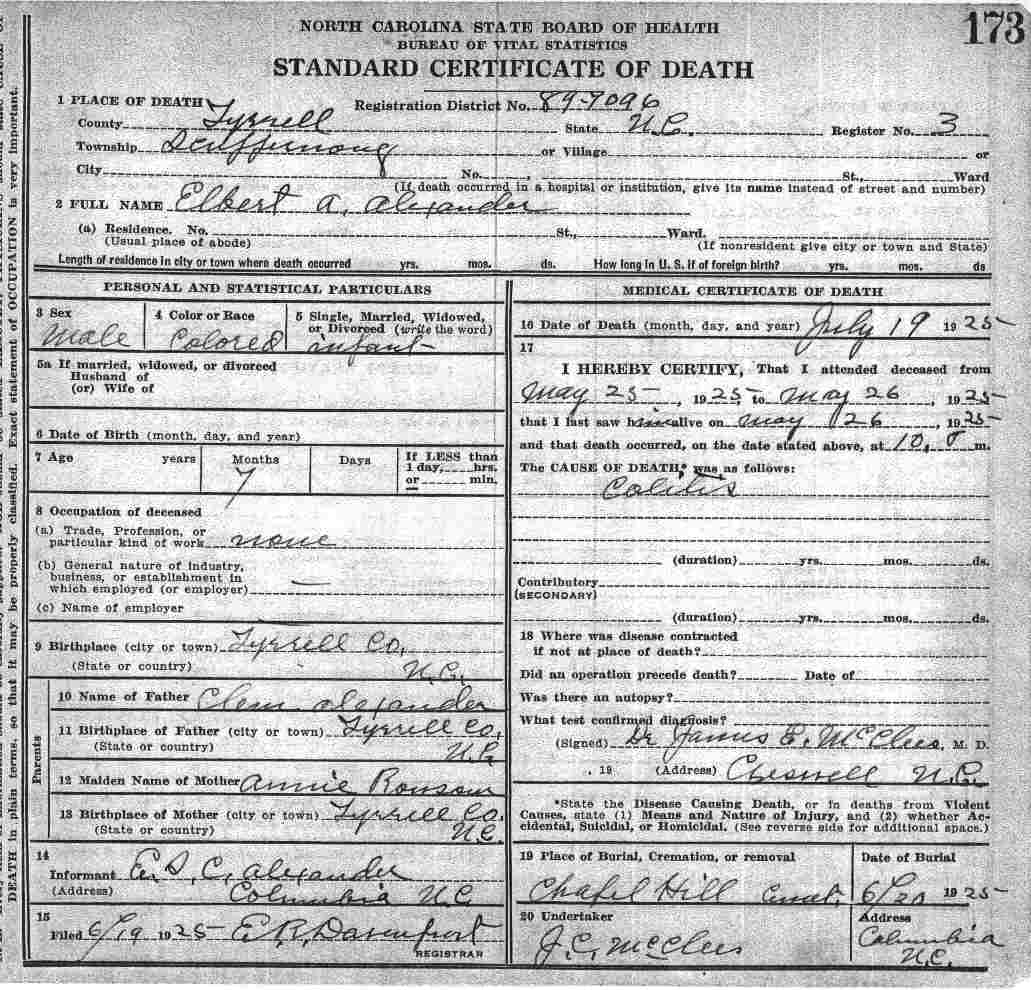 173
NORTH CAROLINA STATE BOARD OF HEALTH
BUREAU OF VITAL STATISTICS
STANDARD CERTIFICATE OF DEATH
1 PLACE OF DEATH Registration District No. 89-7096
County Tyrrell State N.C. Register No. 3
Township Scuppernong or Village or
City No. , St., Ward
(If death occurred in a hospital or institution, give its name instead of street and number)
2 FULL NAME Elbert A. Alexander
(a) Residence. No. St., Ward.
(Usual place of abode) (If nonresident give city or town and State)
Length of residence in city or town where death occurred yrs. mos. ds. How long in U. S. if of foreign birth? yrs. mos. ds
PERSONAL AND STATISTICAL PARTICULARS
3 Sex
Male
4 Color or Race
Colored
5 Single, Married, Widowed,
or Divorced (write the word)
infant
5a If married, widowed, or divorced
Husband of
(or) Wife of
6 Date of Birth (month, day, and year)
7 Age years Months Days If LESS than
1 day, hrs.
or min.
7
8 Occupation of deceased
(a) Trade, Profession, or
particular kind of work none
(b) General nature of industry,
business, or establishment in
which employed (or employer) —
(c) Name of employer
9 Birthplace (city or town) Tyrrell Co,
(State or country) N.C.
Parents
10 Name of Father Clem Alexander
11 Birthplace of Father (city or town) Tyrrell Co,
(State or country) N.C
12 Maiden Name of Mother Annie
13 Birthplace of Mother (city or town) Tyrrell Co.
(State or country) N.C.
14
Informant E. S. C. Alexander
(Address) Columbia N.C
15
Filed 6/19 1925 E.R. Davenport
REGISTRAR
MEDICAL CERTIFICATE OF DEATH
16 Date of Death (month, day, and year) July 19 1925
17
I HEREBY CERTIFY, That I attended deceased from
May 25 , 1925, to May 26 , 1925
that I last saw him alive on May 26 , 1925
and that death occurred, on the date stated above, at 10, m.
The CAUSE OF DEATH,* was as follows:
Colitis
(duration) yrs. mos. ds.
Contributory
(SECONDARY)
(duration) yrs. mos. ds.
18 Where was disease contracted
if not at place of death?
Did an operation precede death? Date of
Was there an autopsy?
What test confirmed diagnosis?
(Signed) Dr James E. McClees, M. D.
, 19 (Address) Creswell N.C.
*State the Disease Causing Death, or in deaths from Violent
Causes, state (1) Means and Nature of Injury, and (2) whether Ac-
cidental, Suicidal, or Homicidal. (See reverse side for additional space.)
19 Place of Burial, Cremation, or removal
Chapel Hill
Date of Burial
6/20 1925
20 Undertaker
J.C. McClees
Address
Columbia
N.C.
DEATH in plain terms, so that it may be properly classified. Exact statement of OCCUPATION is very important.